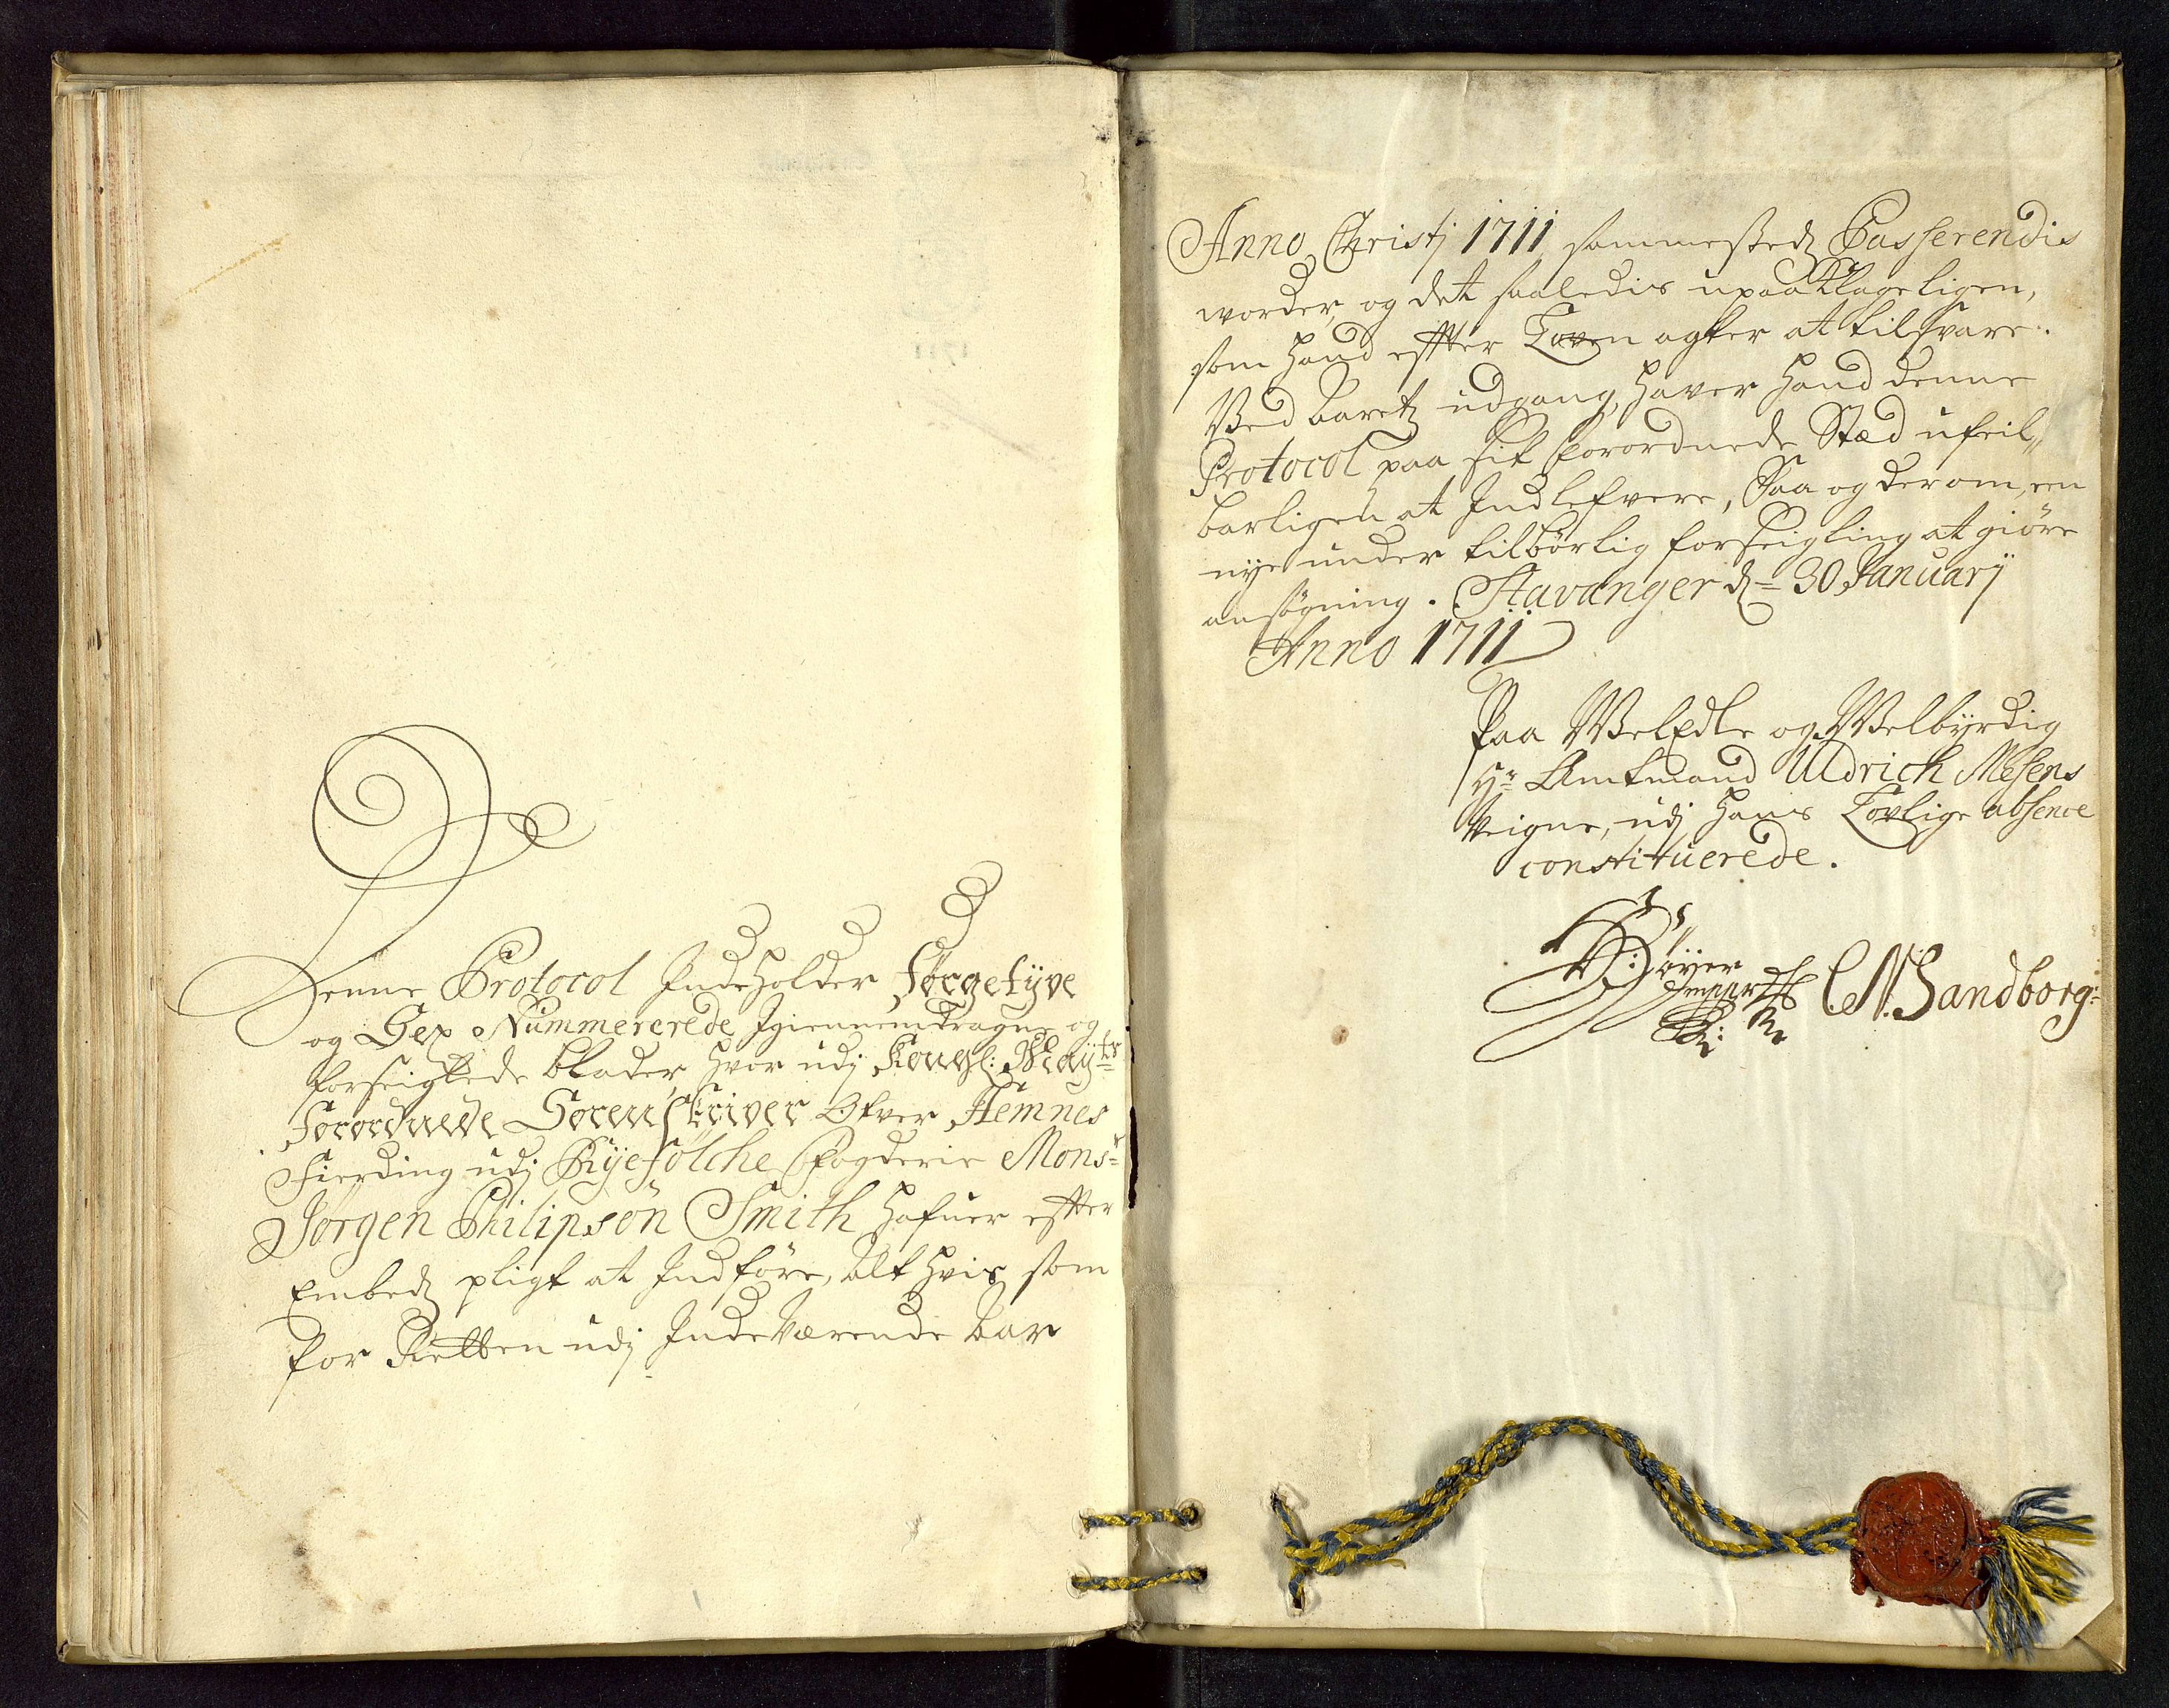 Denne Protocol Indeholder førgetÿve
og Sex Nummererede Igiennemdragne og
forseiglede blader, hvor udj Kongl: Maÿ:ts
Forordnede Sorenskriver Ofver Hemnes
Fierding udj Rÿefölche fogderie Mons:r
Jörgen Philipsön Smith hafuer effter
Embedz pligt at Indföre, alt hvis som
for Retten udj Indeværende Aar
Anno Christj 1711 sammestedz Passerendis
worder, og det saaledis upaaklageligen,
som hand effter Loven agter at tilsvare.
Ved Aaretz udgang, haver hand denne
Protocol paa sit forordnede Stæd ufeil„
barligen at Indlefvere, Saa og derom, een
nye under tilbörlig forseigling at giöre
ansögning. Stavanger d= 30 Januarij
Anno 1711
Paa WelEdle og Welbÿrdig
Hr Amtmand Uldrich Mesens
Veigne, udj hans Lovlige absence
constituerede.
C N: Sandborg:
1711